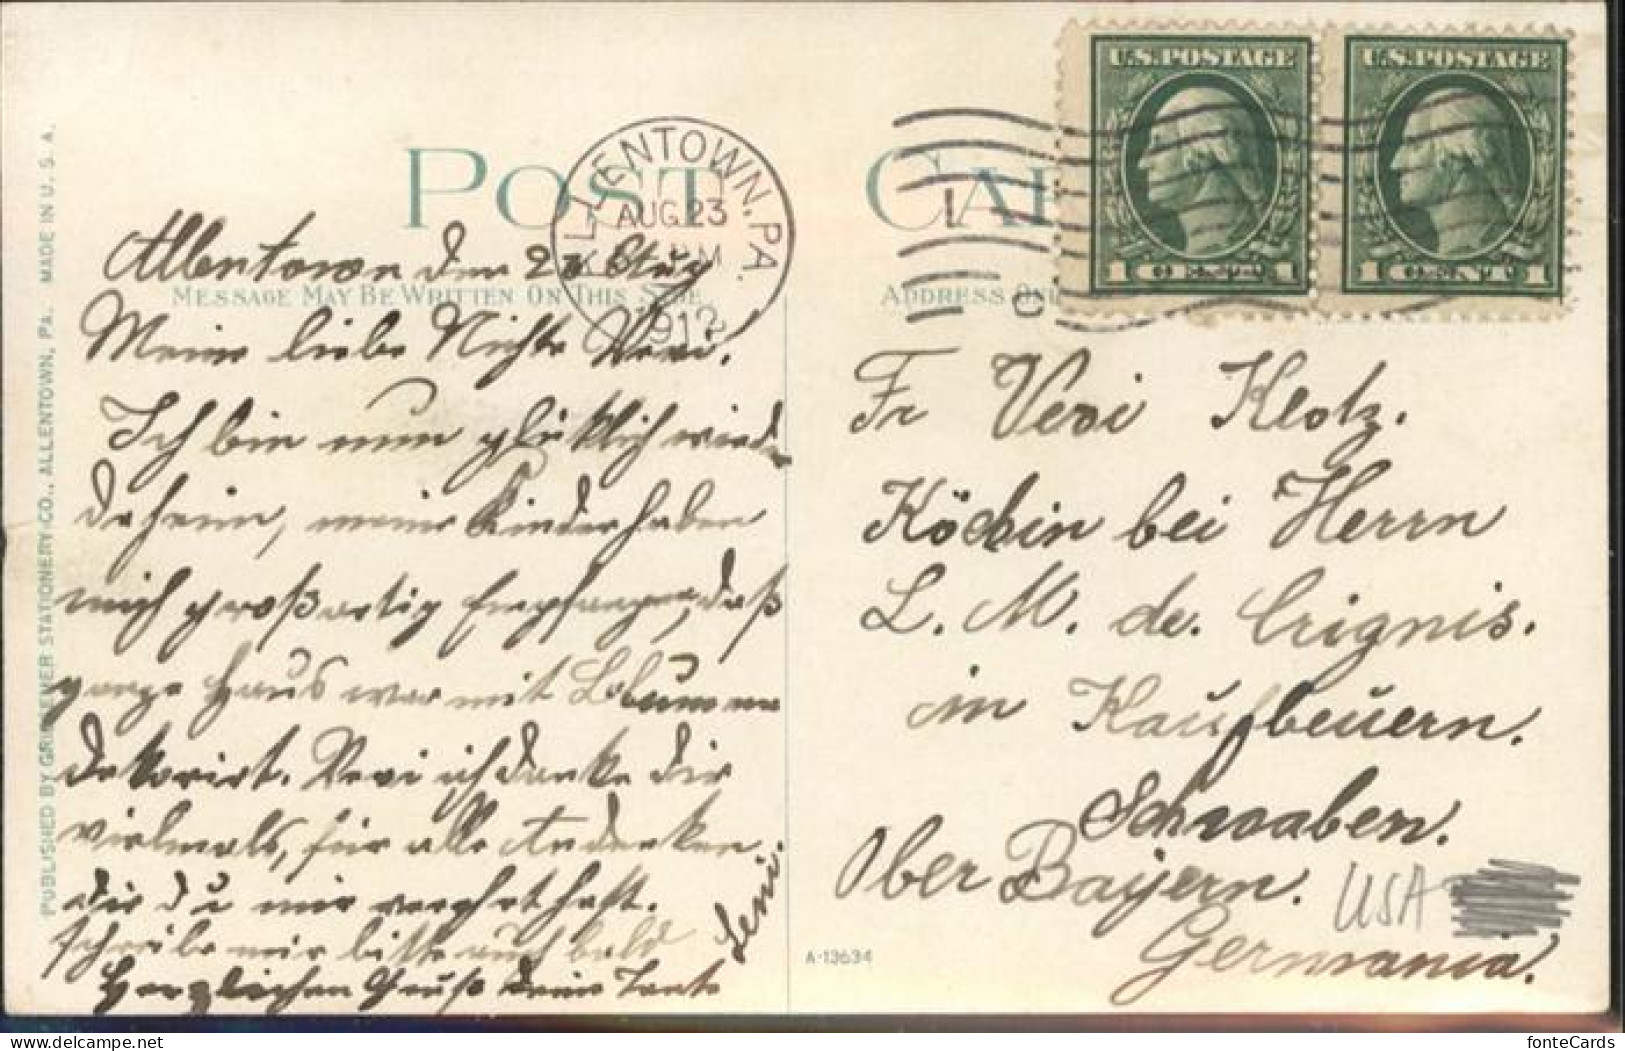 POST CARD
MESSAGE MAY BE WRITTEN ON THIS SIDE
ADDRESS ON
PUBLISHED BY GRIESEMER STATIONERY CO., ALLENTOWN, PA. MADE IN U. S. A.
ALLENTOWN, PA.
AUG 23
PM
1912
U.S. POSTAGE
1 CENT 1
U.S. POSTAGE
1 CENT 1
Allentown den 23 Aug
Meine liebe Nichte Vevi!
Ich bin nun glücklich wieder
daheim, meine Kinder haben
mich großartig Empfangen, das
ganze Haus war mit Blumen
dekorirt. Vevi ich danke dir
vielmals, für alle Andenken
die du mir verehrt hast.
schreibe mir bitte auch bald
Herzlichen Gruß deine Tante
Leni.
Fr Vevi Klotz.
Köchin bei Herrn
L. M. de. Crignis.
in Kaufbeuern.
Schwaben.
Ober Bayern.
Germania.
USA
A-13634
fonteCards